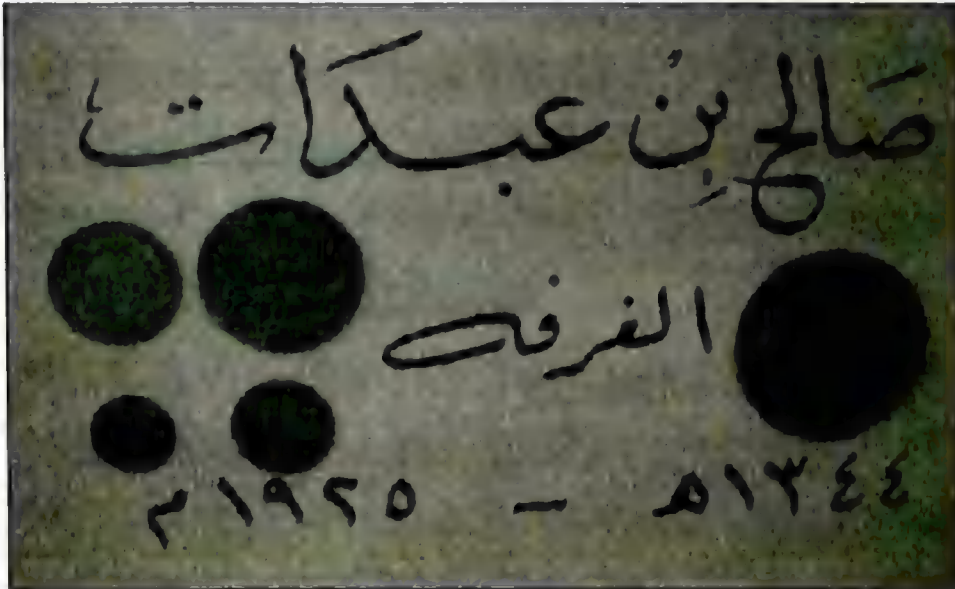 صَالح بِن عبدات
الغرفه
١٣٤٤هـ - ١٩٢٥م